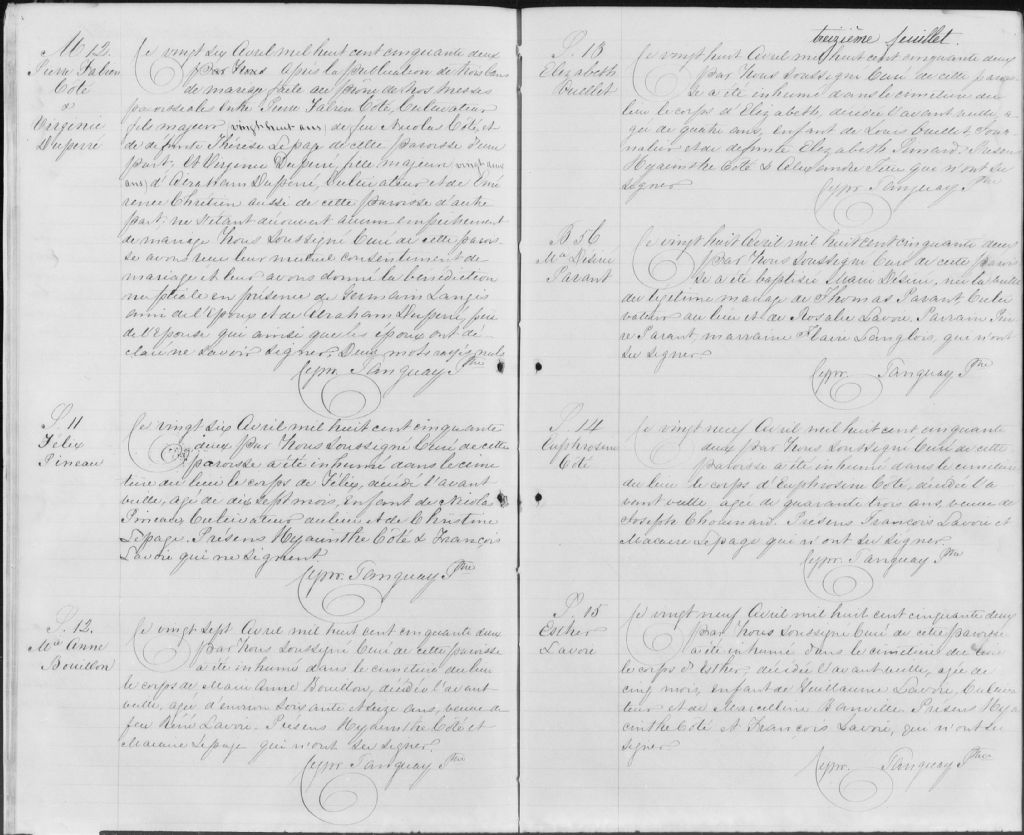 M 12.
Pierre Fabien
Coté
&
Virginie
Duperré
Ce vingt six Avril mil huit cent cinquante deux
par Nous Après la publication de trois bans
de mariage faite au prône de Nos Messes
paroissiales Entre Pierre Fabien Coté, Cultivateur
fils majeur (vingt huit ans) de feu Nicolas Côté, et
de défunte Thérèse Lepage de cette paroisse d'une
part; Et Virginie Duperré, fille majeure vingt
ans) d'Abraham Duperré, Cultivateur et de Emé
rence Chrétien aussi de cette paroisse d'autre
part; ne s'étant découvert aucun empêchement
de mariage Nous Soussigné Curé de cette parois
se avons reçu leur mutuel consentement de
mariage et leur avons donné la bénédiction
nuptiale en présence de Germain Langis
ami de l'Epoux et de Abraham Duperré, père
de l'Epouse qui ainsi que les époux ont dé
claré ne Savoir signer. Deux mots rayés nuls
Cypr. Tanguay Ptre
S. 11
Félix
Pineau
Ce vingt six Avril mil huit cent cinquante
deux par Nous Soussigné Curé de cette
paroisse a été inhumé dans le cime
tière du lieu le corps de Félix, décédé l'avant
veille, agé de dix sept mois, enfant de Nicolas
Pineau, Cultivateur du lieu et de Christine
Lepage. Présens Hyacinthe Côté & François
Lavoie qui ne signent
Cypr. Tanguay Ptre
S. 12.
Ma Anne
Bouillon
Ce vingt sept Avril mil huit cent cinquante deux
par Nous Soussigné Curé de cette paroisse
a été inhumé dans le cimetière du lieu
le corps de Marie Anne Bouillon, décédée l'avant
veille, agée d'environ soixante et seize ans, veuve de
feu Réné Lavoie. Présens Hyacinthe Côté et
Macaire Lepage qui n'ont su signer.
Cypr Tanguay Ptre
treizième feuillet.
S. 13
Elizabeth
Ouellet
Ce vingt huit Avril mil huit cent cinquante deux
par Nous Soussigné Curé de cette parois
se a été inhumé dans le cimetière du
lieu le corps d'Elizabeth, décédée l'avant veille, a
gée de quatre ans, enfant de Louis Ouellet Jour
nalier et de défunte Elizabeth Pinard. Présens
Hyacinthe Côté & Alexandre que n'ont su
signer
Cypr Tanguay Ptre
B 56
Ma Désiré
Parant
Ce vingt huit Avril mil huit cent cinquante deux
par Nous Soussigné Curé de cette parois
se a été baptisée Marie Désiré, née la veille
du légitime mariage de Thomas Parant Culti
vateur du lieu et de Rosalie Lavoie. Parrain Pier
re Parant, marraine Marie Langlois, qui n'ont
su signer
Cypr. Tanguay Ptre
S. 14
Euphrosine
Coté
Ce vingt neuf Avril mil huit cent cinquante
deux par Nous Soussigné Curé de cette
paroisse a été inhumé dans le cimetière
du lieu le corps d'Euphrosine Côté, décédée l'a
vant veille agée de quarante trois ans, veuve de
Joseph Chouinard. Présens François Lavoie et
Macaire Lepage qui n'ont su signer.
Cypr. Tanguay Ptre
S. 15
Esther
Lavoie
Ce vingt neuf Avril mil huit cent cinquante deux
par Nous Soussigné Curé de cette paroisse
a été inhumé dans le cimetière du lieu
le corps d'Esther, décédée l'avant veille, agée de
cinq mois, enfant de Guillaume Lavoie, Cultiva
teur et de Marcelline Banville. Présens Hya
cinthe Côté et François Lavoie, qui n'ont su
signer
Cypr. Tanguay Ptre